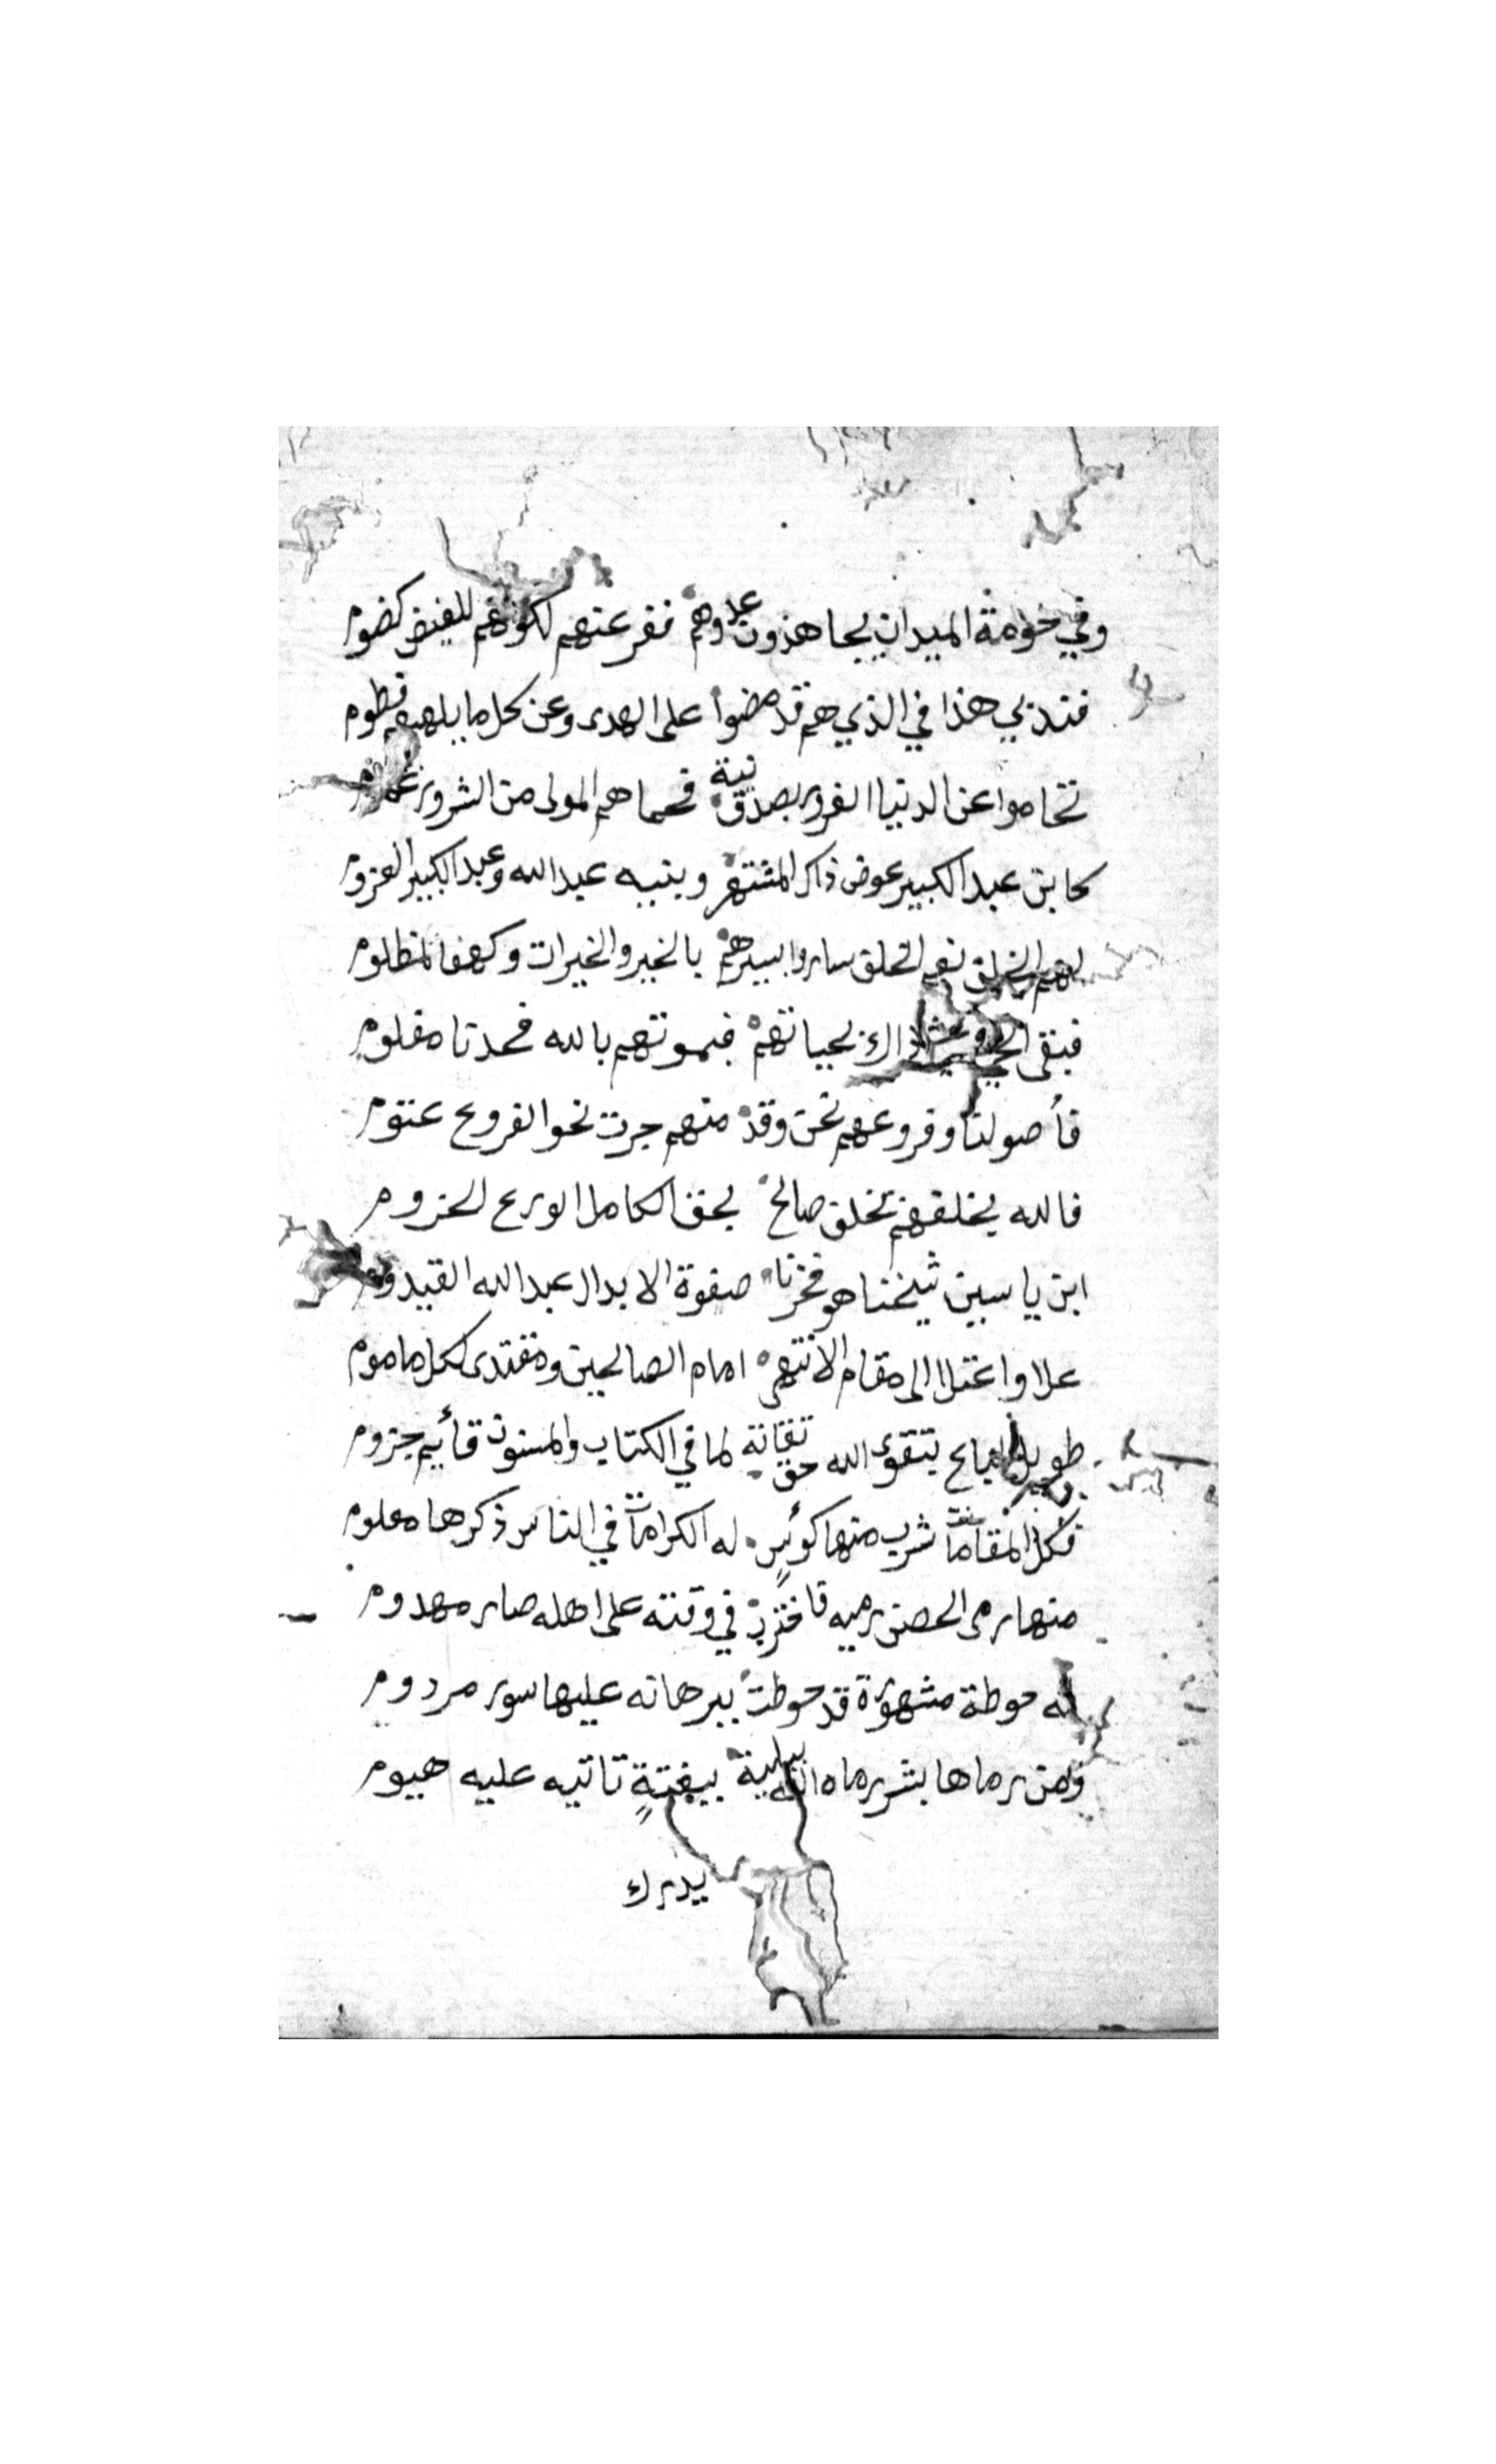 وفي حومة الميدان يجاهدون عدوهم ففر عنهم لكونهم للغيض كضوم
فتدبي هذا في الذي هم قد مضوا على الهدى وعن كل ما يلهيهم فطوم
تحاموا عن الدنيا الغرور بصدق نية فحماهم المولى من الشرور
كابن عبد الكبير عوض ذاكر المشتهر وبنيه عبد الله وعبد الكبير العزوم
نعم الخلق ساروا بسيرهم بالخير والخيرات وكهفا لمظلوم
فبقى لحياتهم فبموتهم بالله فحدنا مفلوم
فأصولنا وفروعهم نحن وقد منهم جرت نحو الفروع عنوم
فالله يخلفهم بخلف صالح بحق الكامل الورع الحزوم
ابن ياسين شيخنا هو فخرنا صفوة الابدال عبد الله القيدوم
علا واعتلا الى مقام الانتهى امام الصالحين ومقتدى لكل ماموم
طويل الباع بتقوى الله حق تقانة لما في الكتاب والمسنون قأيم جزوم
فكل المقامات شرب منها كوئس له الكرامات في الناس ذكرها معلوم
منها رمى الحصن رميه فاختربت في وقته على اهله صار مهدوم
له حوطة مشهورة قد حوطت ببرهانه عليها سور مردوم
ومن رماها بشر رماه الله ببلية ببغتةٍ تاتيه عليه هيوم
يدرك